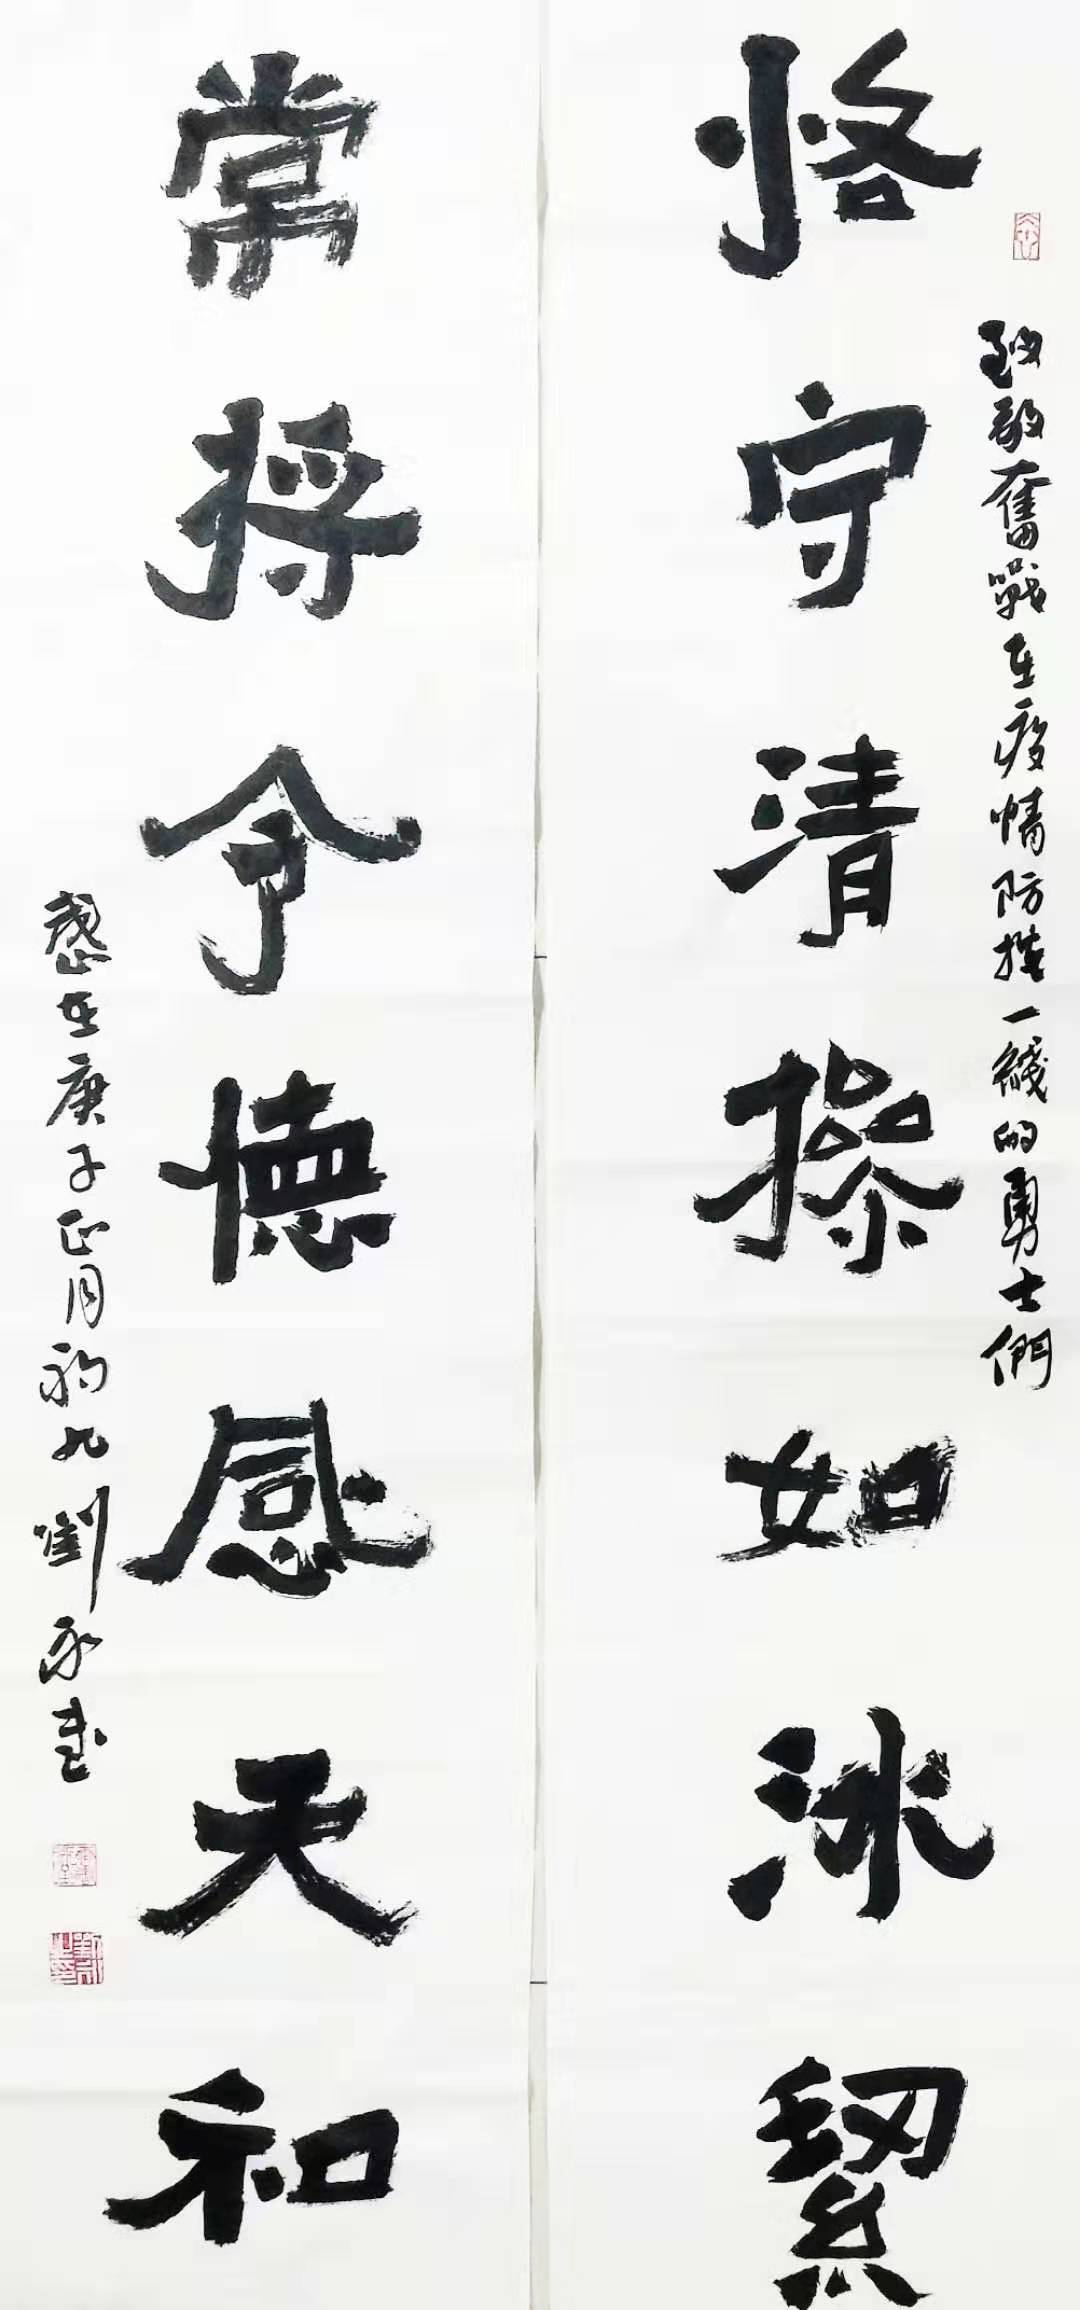 恪守清操如冰絜
致敬奮戰在疫情防控一綫的勇士們
常将令德感天和
歲在庚子正月初九劉永